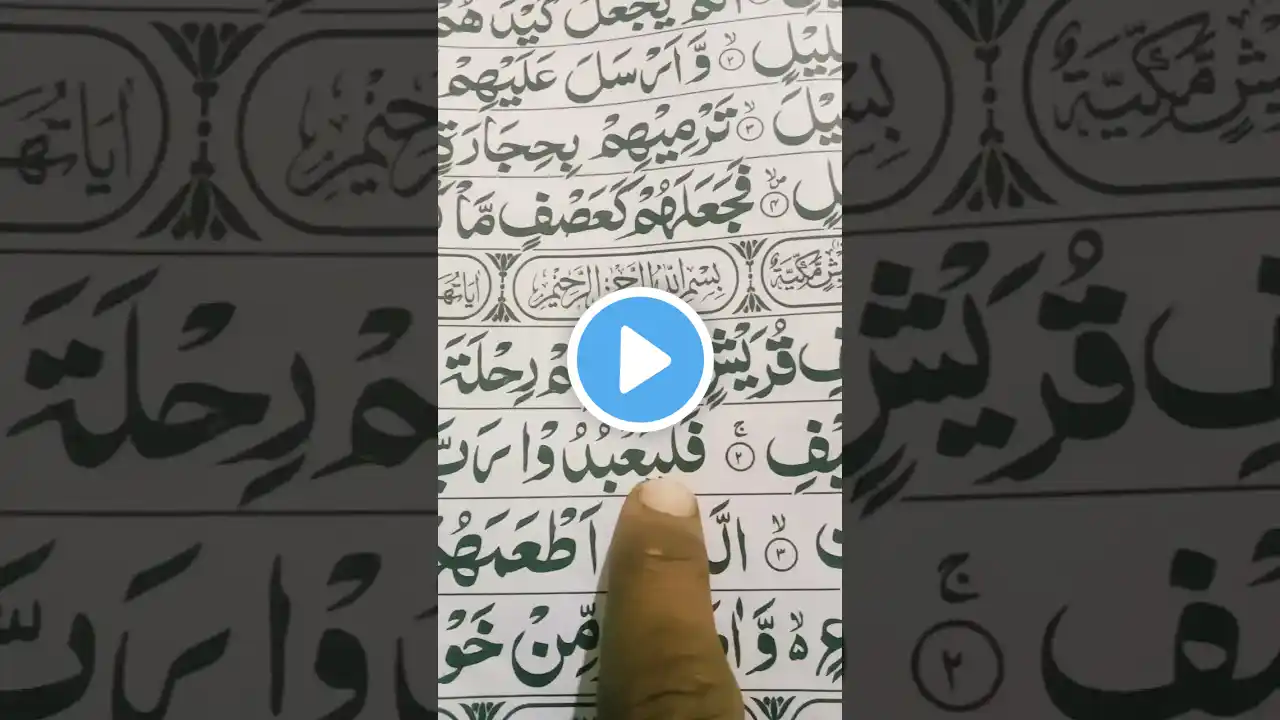 اَلَمْ يَجْعَلْ كَيْدَهُمْ
وَّاَرْسَلَ عَلَيْهِمْ ۝٢ لِيْلٍ
تَرْمِيْهِمْ بِحِجَارَةٍ ۝٣ يْلَ
فَجَعَلَهُمْ كَعَصْفٍ مَّاْ ۝٤ لٍ
يْشٍ مَّكِّيَّةٌ بِسْمِ اللّٰهِ الرَّحْمٰنِ الرَّحِيْمِ اٰيَاتُهَا
فِ قُرَيْشٍ هِمْ رِحْلَةَ
يْفِ ۝٢ۚ فَلْيَعْبُدُوْا رَبَّ
الَّ اَطْعَمَهُمْ ۝٣ۙ
عٍ ۙ وَّاٰ مِّنْ خَوْ